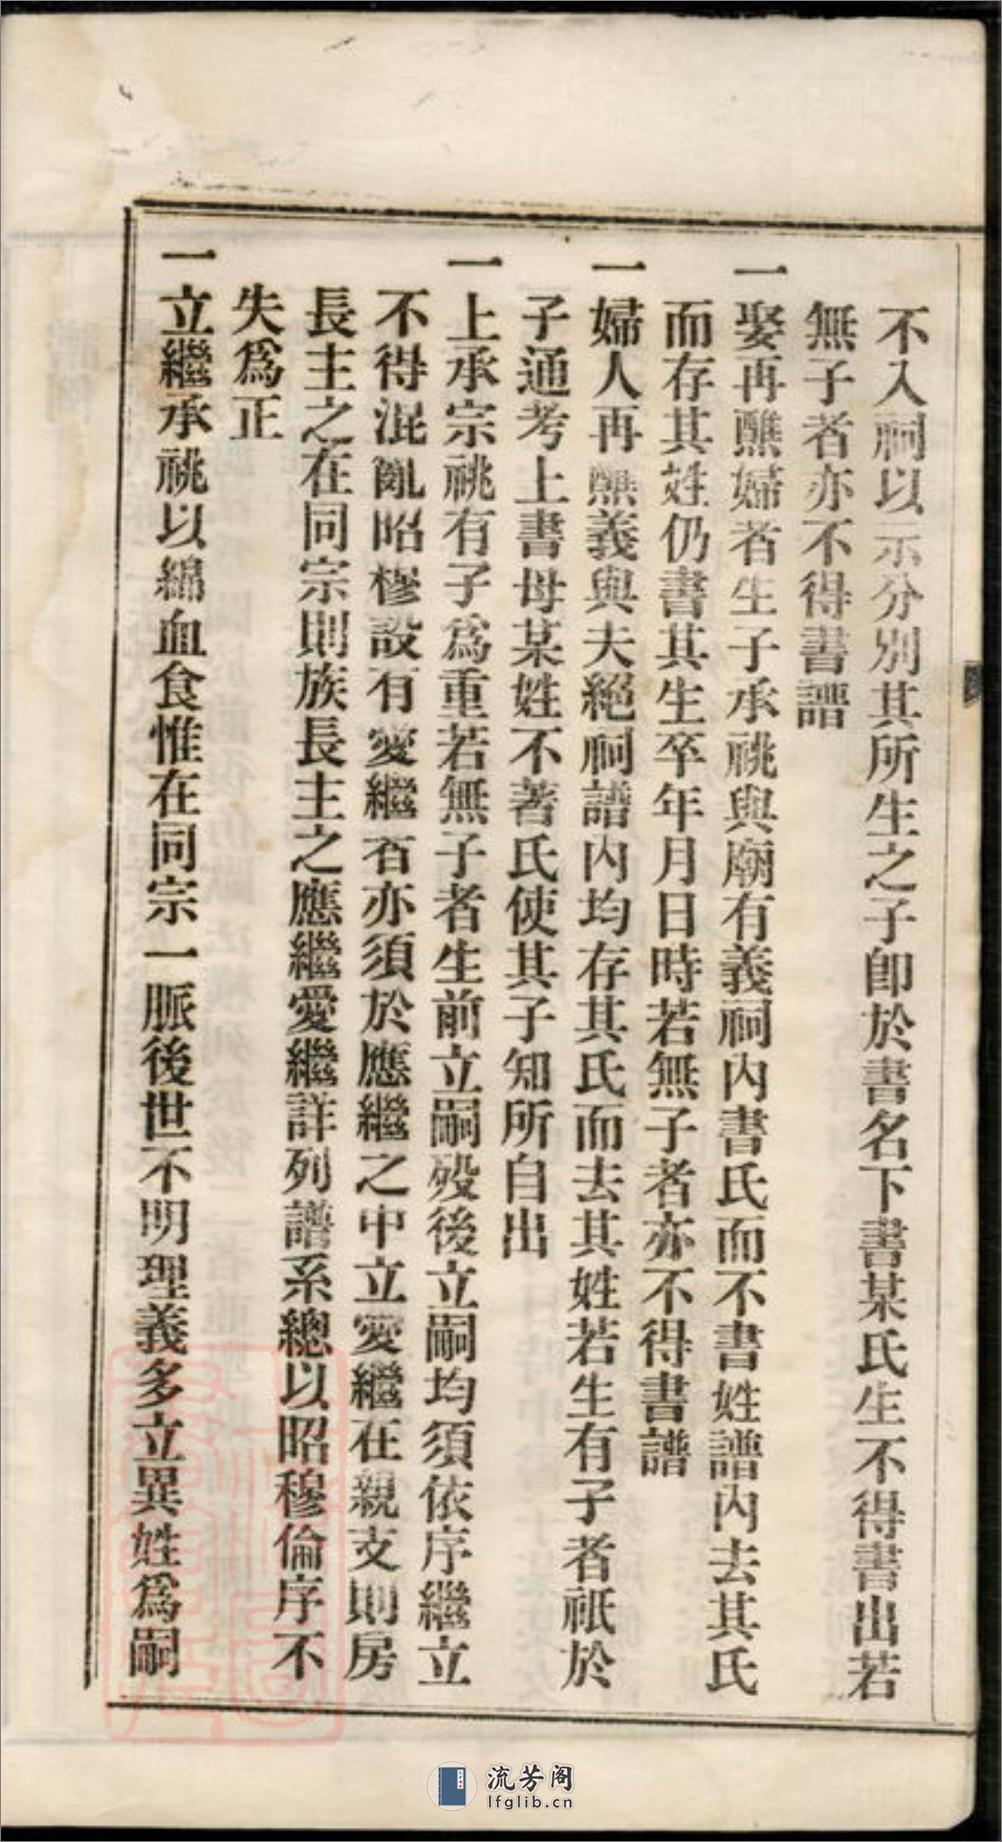 不入祠以示分別其所生之子卽於書名下書某氏生不得書出若
無子者亦不得書譜
一娶再醮婦者生子承祧與廟有義祠內書氏而不書姓譜內去其氏
而存其姓仍書其生卒年月日時若無子者亦不得書譜
一婦人再醮義與夫絕祠譜內均存其氏而去其姓若生有子者祇於
子通考上書母某姓不著氏使其子知所自出
一上承宗祧有子爲重若無子者生前立嗣歿後立嗣均須依序繼立
不得混亂昭穆設有愛繼者亦須於應繼之中立愛繼在親支則房
長主之在同宗則族長主之應繼愛繼詳列譜系總以昭穆倫序不
失爲正
一立繼承祧以綿血食惟在同宗一脈後世不明理義多立異姓爲嗣
流芳阁
lfglib.cn